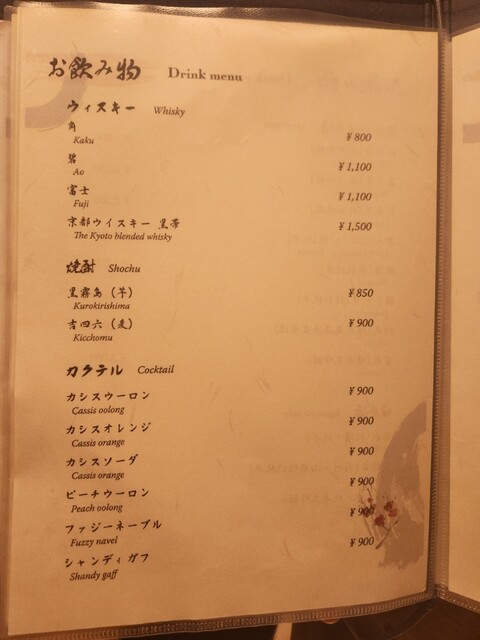 お飲み物 Drink menu
ウィスキー Whisky
角
Kaku ¥ 800
碧
Ao ¥ 1,100
富士
Fuji ¥ 1,100
京都ウイスキー 黒帯 ¥ 1,500
The Kyoto blended whisky
焼酎 Shochu
黒霧島（芋） ¥ 850
Kurokirishima
吉四六（麦） ¥ 900
Kicchomu
カクテル Cocktail
カシスウーロン ¥ 900
Cassis oolong
カシスオレンジ ¥ 900
Cassis orange
カシスソーダ ¥ 900
Cassis orange
ピーチウーロン ¥ 900
Peach oolong
ファジーネーブル ¥ 900
Fuzzy navel
シャンディガフ ¥ 900
Shandy gaff